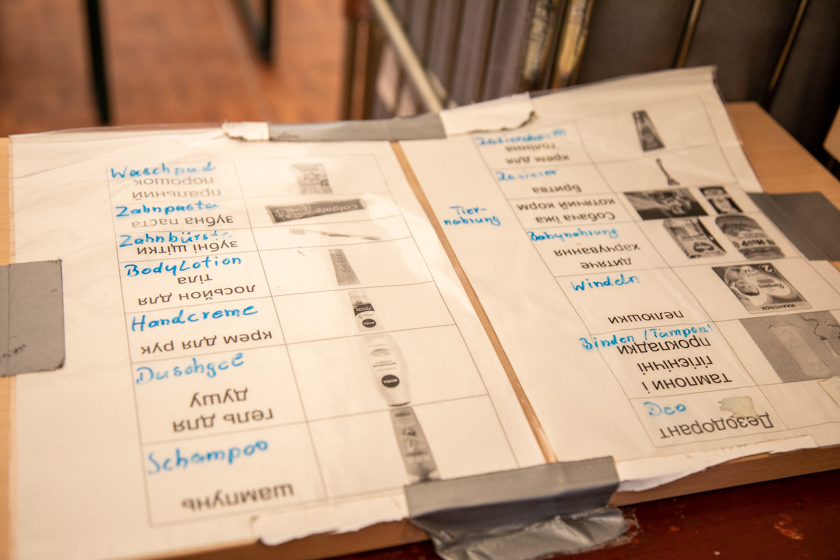 Waschpad
пральний
порошок
Zahnpasta
зубна паста
Colgate
Zahnbürste
зубні щітки
BodyLotion
лосьйон для
тіла
Handcreme
крем для рук
Duschgel
гель для
душу
NIVEA
Schampoo
шампунь
крем для
гоління
Rasierer
бритва
Tier-
nahrung
Собача їжа
котячий корм
Babynahrung
дитяче
харчування
Windeln
пелюшки
Pampers
Binden / Tampons
тампони і
гігієнічні
прокладки
Deo
Дезодорант